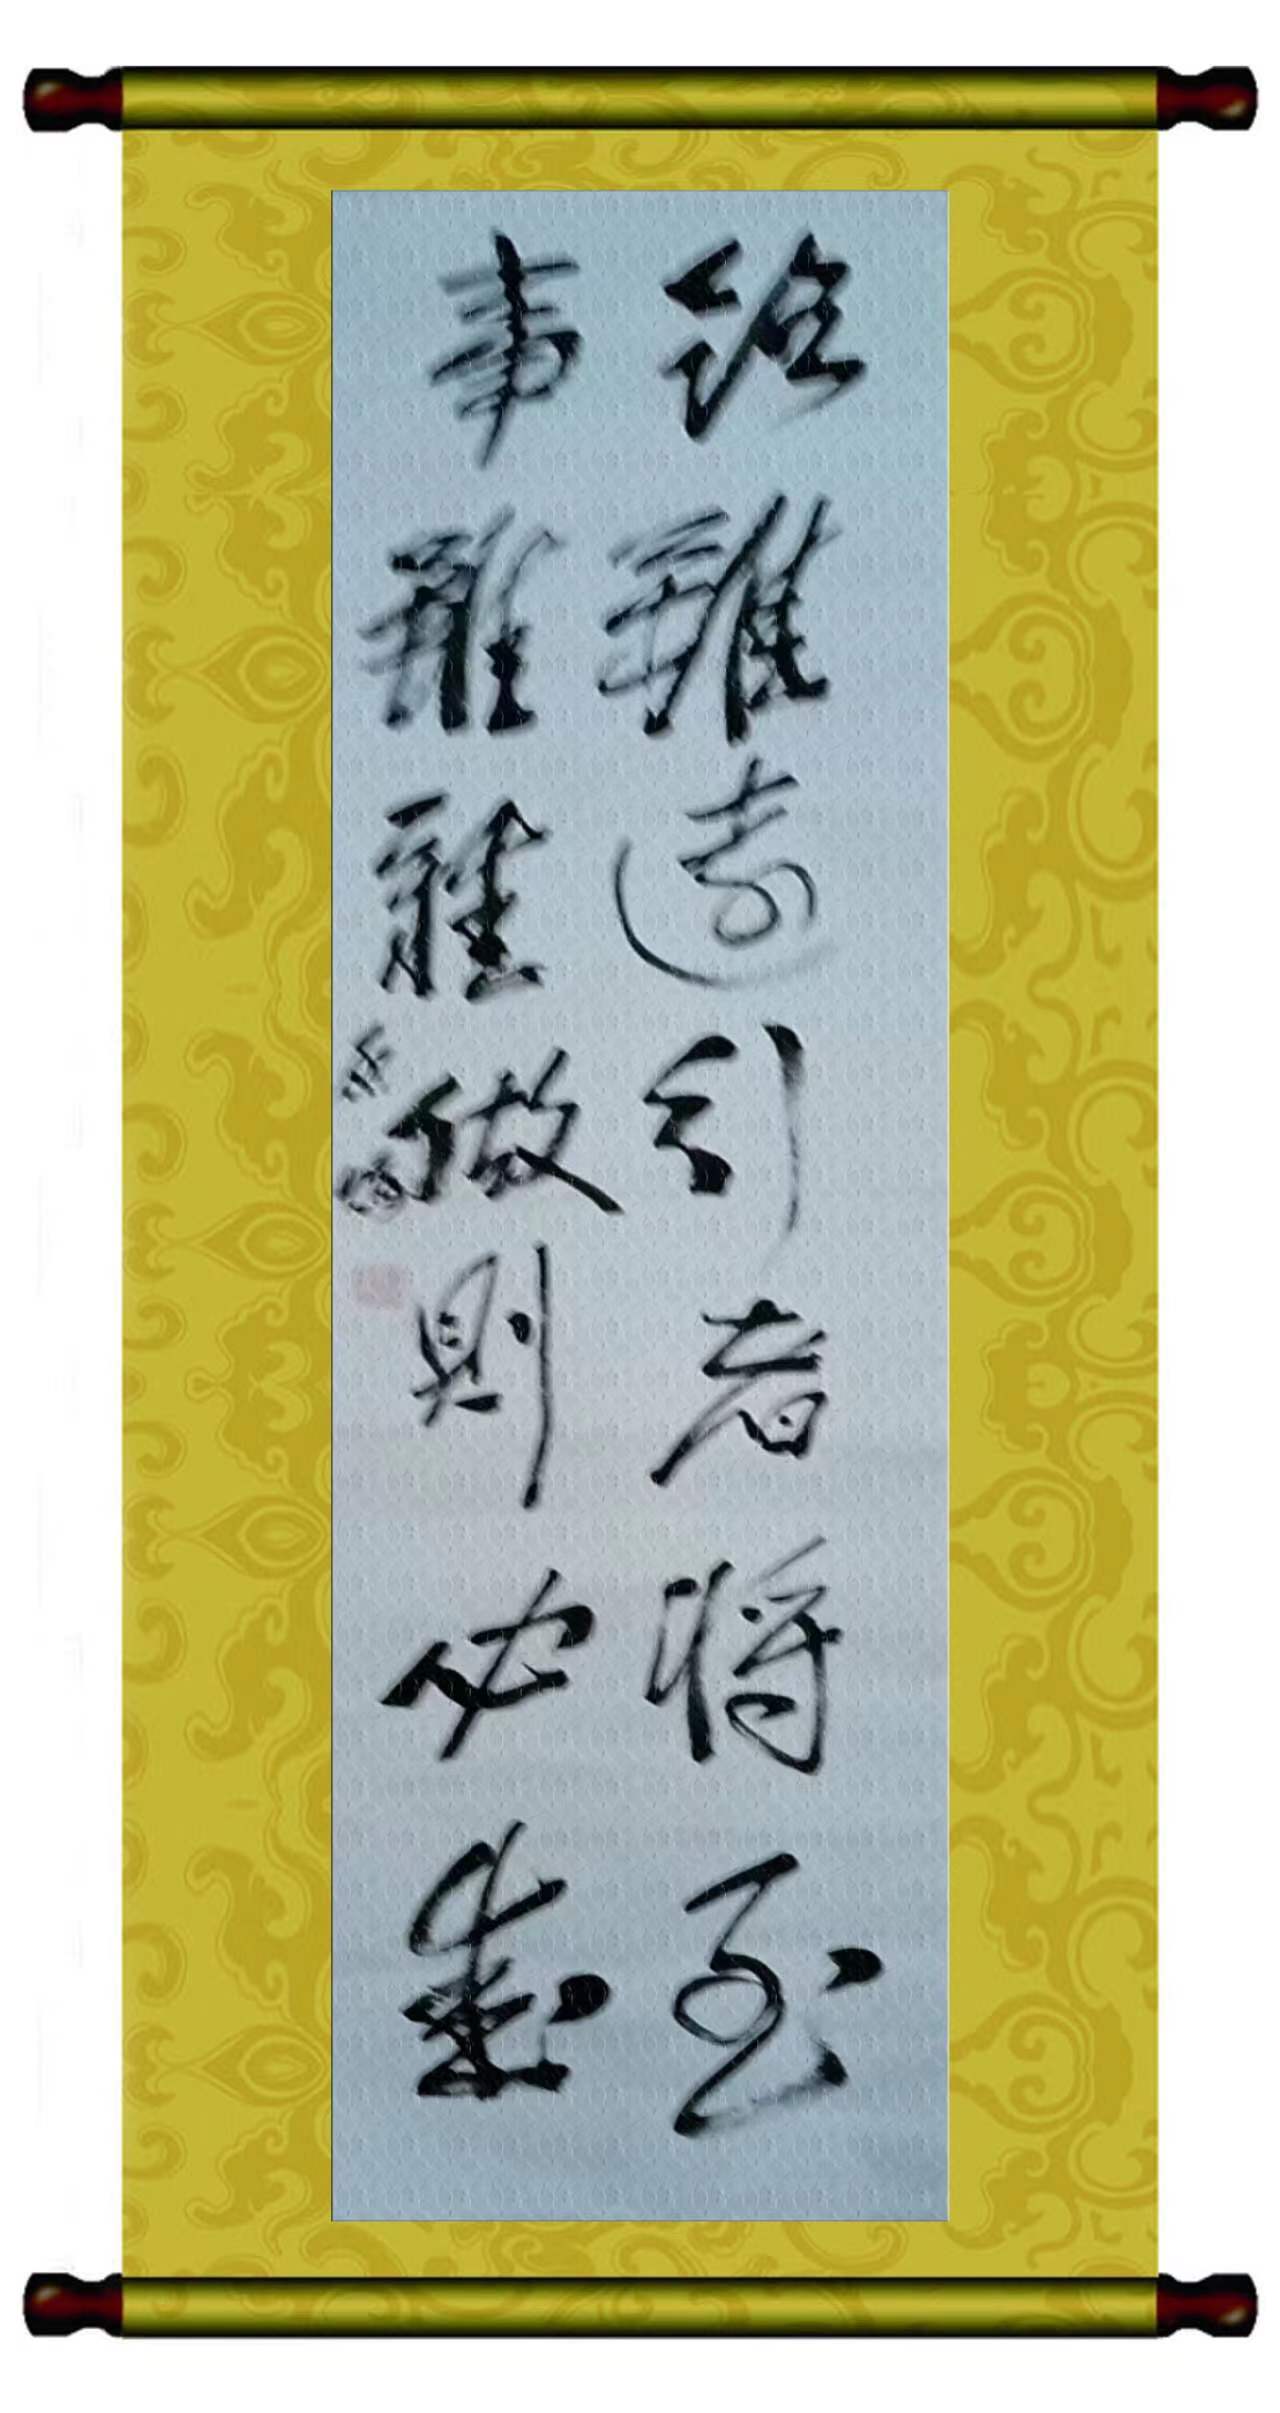 路雖遠行者將至
事雖難做則必成